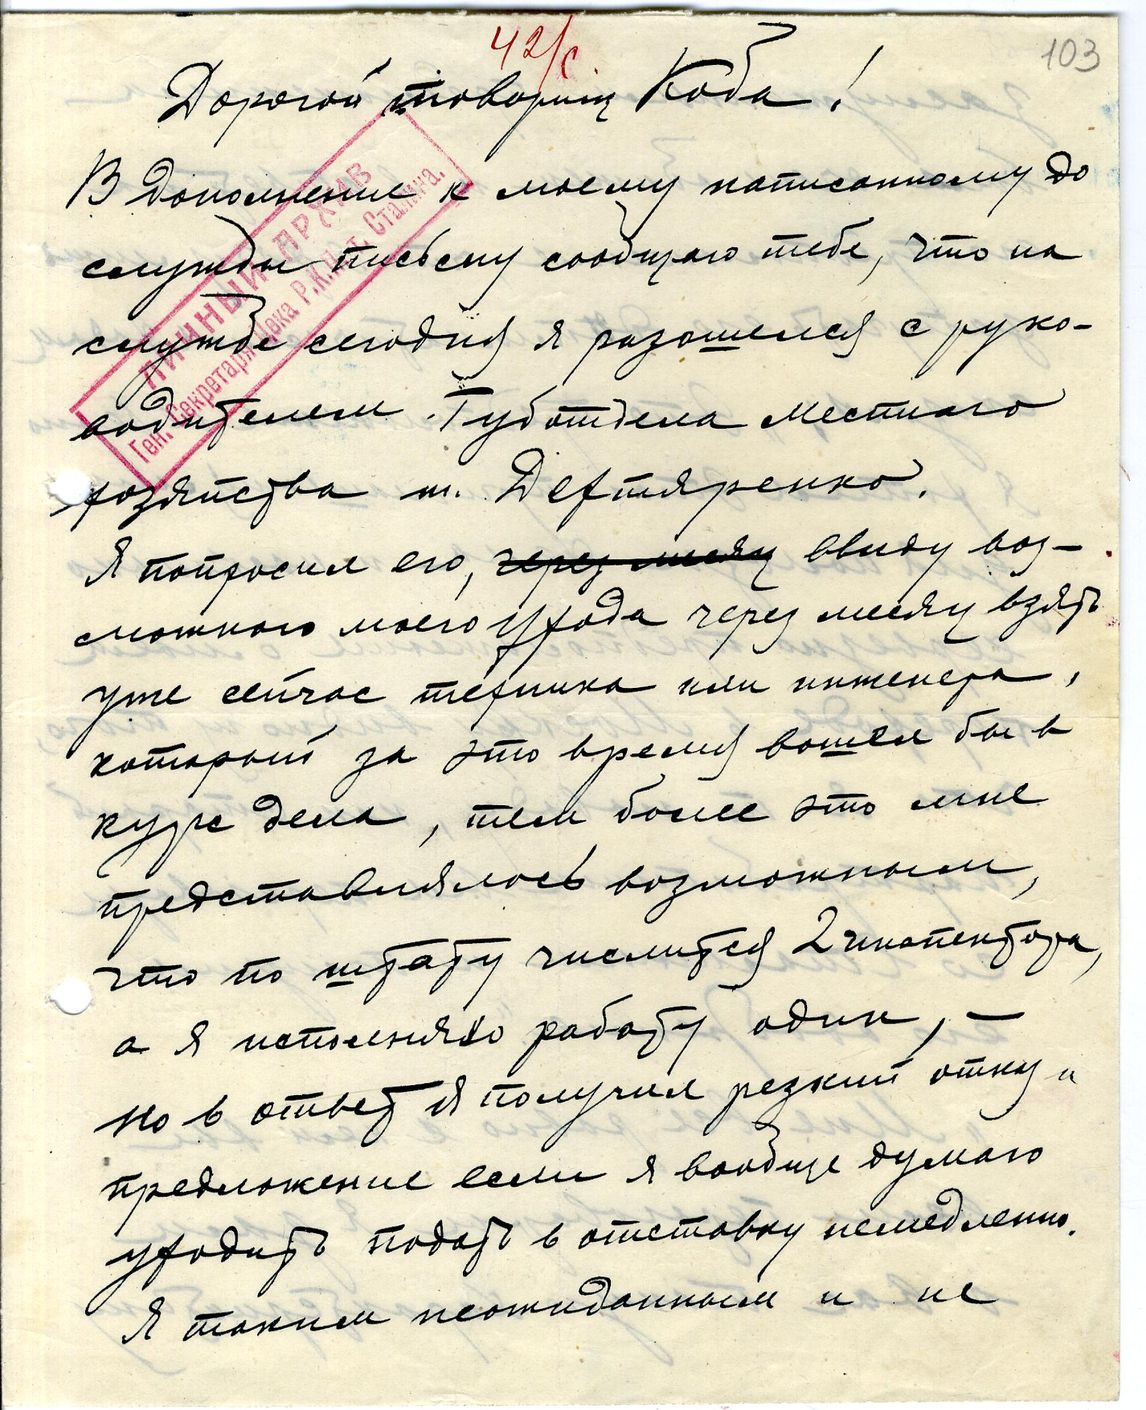 42/с
103
Дорогой товарищ Коба!
ЛИЧНЫЙ АРХИВ
Ген. Секретаря Цека Р.К.П. т. Сталина.
В дополнение к моему написанному до
службы письму сообщаю тебе, что на
службе сегодня я разошелся с руко-
водителем Губотдела местного
хозяйства т. Дехтяренко.
Я попросил его, через месяц ввиду воз-
можного моего ухода через месяц взять
уже сейчас техника или инженера,
который за это время вошел бы в
курс дела, тем более это мне
представлялось возможным,
что по штату числится 2 инспектора,
а я исполняю работу один, —
но в ответ я получил резкий отказ и
предложение если я вообще думаю
уходить подать в отставку немедленно.
Я таким неожиданным и не